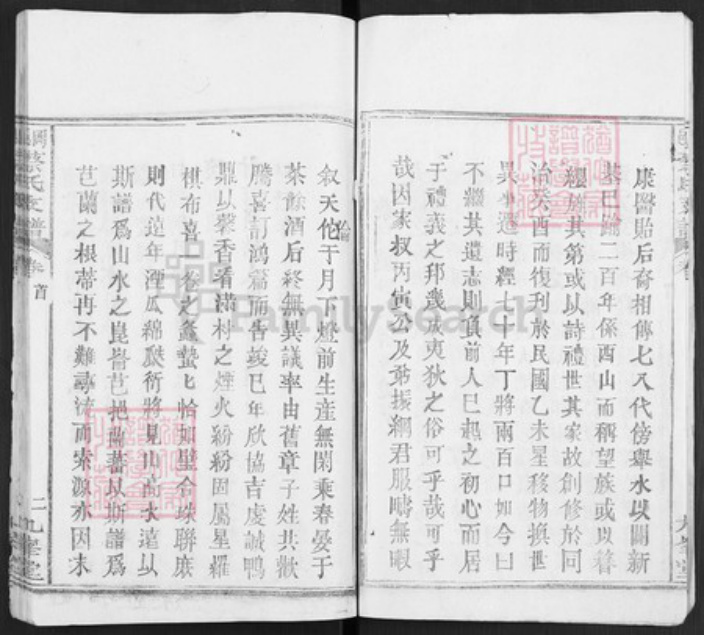 康醫貽后裔相傳七八代傍舉水以開新
基已踰二百年係西山而稱望族或以簪
纓盛其第或以詩禮世其家故創修於同
治癸酉而復刊於民國乙未星移物換世
異事遷時經七十年丁將兩百口如今日
不繼其遺志則負前人已起之初心而居
于禮義之邦幾成夷狄之俗可乎哉可乎
哉因家叔丙寅公及弟振綱君服疇無暇
敘天伦于月下燈前生産無閑乘春晏于
茶餘酒后終無異議率由舊章子姓共歡
騰喜訂鴻篇而告竣已年欣協吉虔誠鴨
鼎以馨香看滿村之煙火紛紛固屬星羅
棋布喜一卷之螽蟄匕恰如璧合珠聯庶
則代遠年湮瓜綿瓞衍將見山高水遠以
斯譜爲山水之崑崙芭抱蘭蕃以斯譜爲
芭蘭之根蒂再不難尋流而索源亦因末
蔡氏支譜
卷首
二
九峯堂
FamilySearch